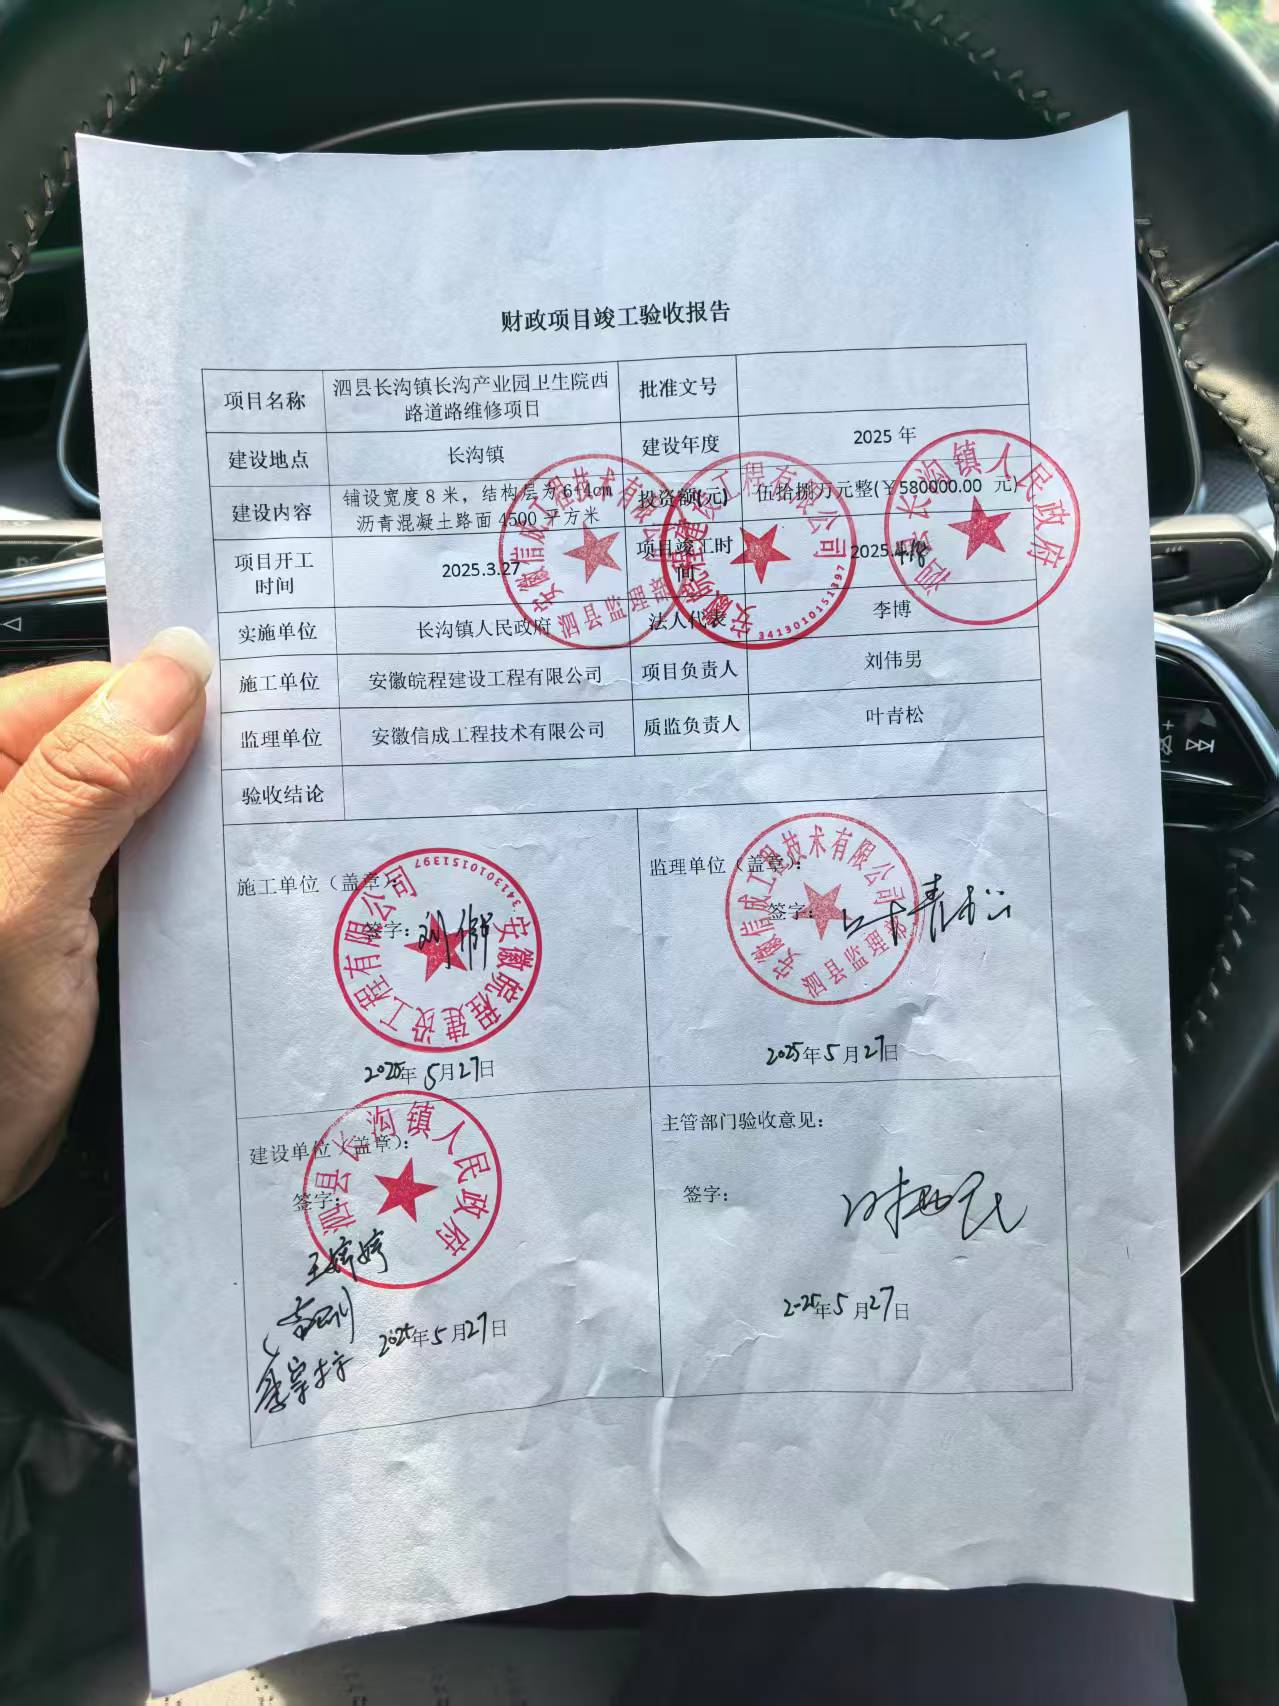 财政项目竣工验收报告
项目名称
泗县长沟镇长沟产业园卫生院西
路道路维修项目
批准文号
建设地点
长沟镇
建设年度
2025 年
建设内容
铺设宽度 8 米，结构层为 6+4cm
沥青混凝土路面 4500 平方米
投资额(元)
伍拾捌万元整(￥580000.00 元)
项目开工
时间
2025.3.27
项目竣工时
间
2025.4.18
实施单位
长沟镇人民政府
法人代表
李博
施工单位
安徽皖程建设工程有限公司
项目负责人
刘伟男
监理单位
安徽信成工程技术有限公司
质监负责人
叶青松
验收结论
安徽信成工程技术有限公司
泗县监理部
安徽皖程建设工程有限公司
3413010151397
泗县长沟镇人民政府
施工单位（盖章）：
签字：
安徽皖程建设工程有限公司
3413010151397
2025年5月27日
监理单位（盖章）：
签字：叶青松
安徽信成工程技术有限公司
泗县监理部
2025年5月27日
建设单位（盖章）：
签字：
泗县长沟镇人民政府
王婷婷
2025年5月27日
主管部门验收意见：
签字：
2025年5月27日